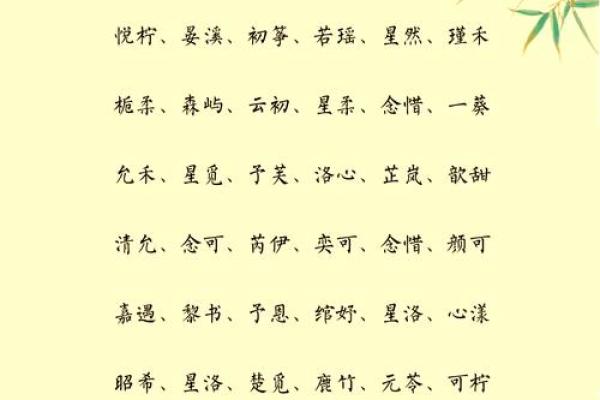 悦柠、晏溪、初筝、若瑶、星然、瑾禾
栀柔、森屿、云初、星柔、念惜、一葵
允禾、星觅、予芙、洛心、芷岚、歆甜
清允、念可、芮伊、奕可、念惜、颜可
嘉遇、黎书、予恩、绾妤、星洛、心漾
昭希、星洛、楚觅、鹿竹、元苓、可柠